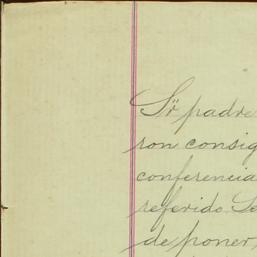 Sr padre
ron consig
conferencia
referido Se
de poner,